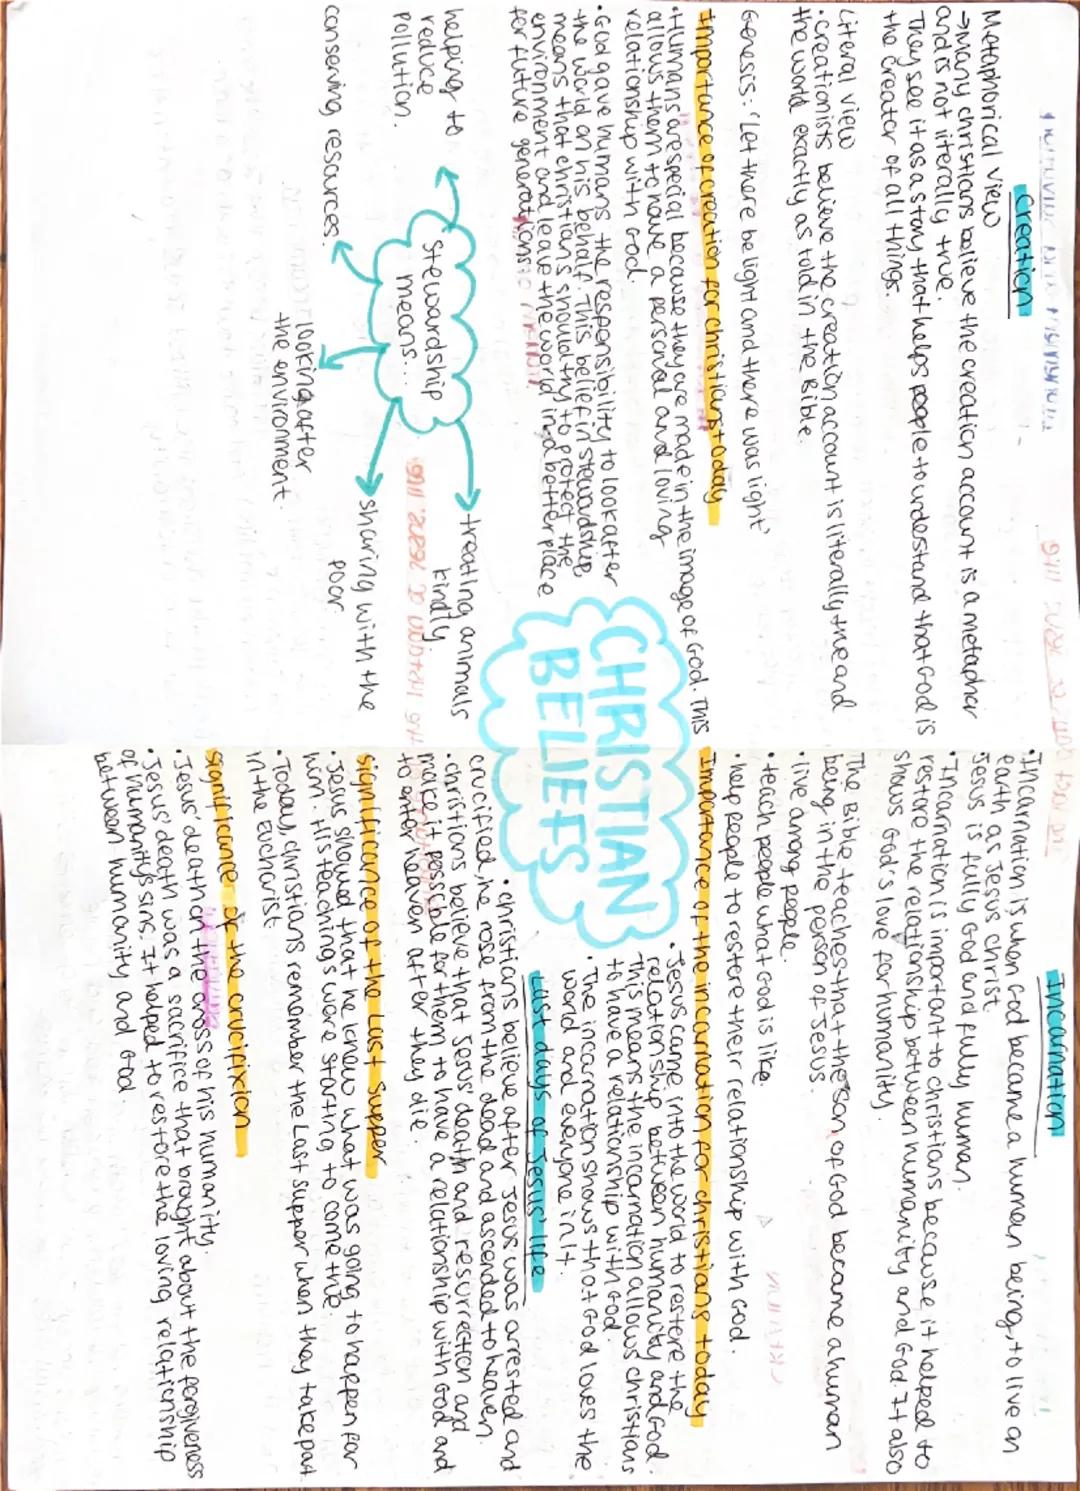 Creation
Metaphorical view
→Many christians believe the creation account is a metaphor
and is not literally true.
They see it as a story that helps people to understand that God is
the creator of all things.
Literal view
•creationists believe the creation account is literally true and
the world exactly as told in the Bible.
Genesis: 'Let there be light and there was light'
Importance of creation for christians today
•Humans are special because they are made in the image of God. This
allows them to have a personal and loving
relationship with God.
•God gave humans the responsibility to look after
the world on his behalf. This belief in stewardship
means that christians should try to protect the
environment and leave the world in a better place
for future generations.
Stewardship
means...
helping to
reduce
pollution.
conserving resources.
looking after
the environment.
sharing with the
poor.
treating animals
kindly.
CHRISTIAN
BELIEFS
Incarnation
•Incarnation is when God became a human being, to live on
earth as Jesus christ
•Jesus is fully God and fully human.
•Incarnation is important to christians because it helped to
restore the relationship between humanity and God. It also
shows God's love for humanity.
The Bible teaches that the Son of God became a human
being in the person of Jesus.
•live among people.
•teach people what God is like.
•help people to restore their relationship with God.
Importance of the incarnation for christians today
•Jesus came into the world to restore the
relationship between humanity and God.
This means the incarnation allows christians
to have a relationship with God.
•The incarnation shows that God loves the
world and everyone in it.
Last days of Jesus' life
•christians believe after Jesus was arrested and
crucified, he rose from the dead and ascended to heaven.
•christians believe that Jesus' death and resurrection and
make it possible for them to have a relationship with God and
to enter heaven after they die.
significance of the Last Supper
•Jesus showed that he knew what was going to happen for
him. His teachings were starting to come true.
•Today, christians remember the Last supper when they take part
in the Eucharist
significance of the crucifixion
•Jesus' death on the cross of his humanity.
•Jesus' death was a sacrifice that brought about the forgiveness
of humanity's sins. It helped to restore the loving relationship
between humanity and God.